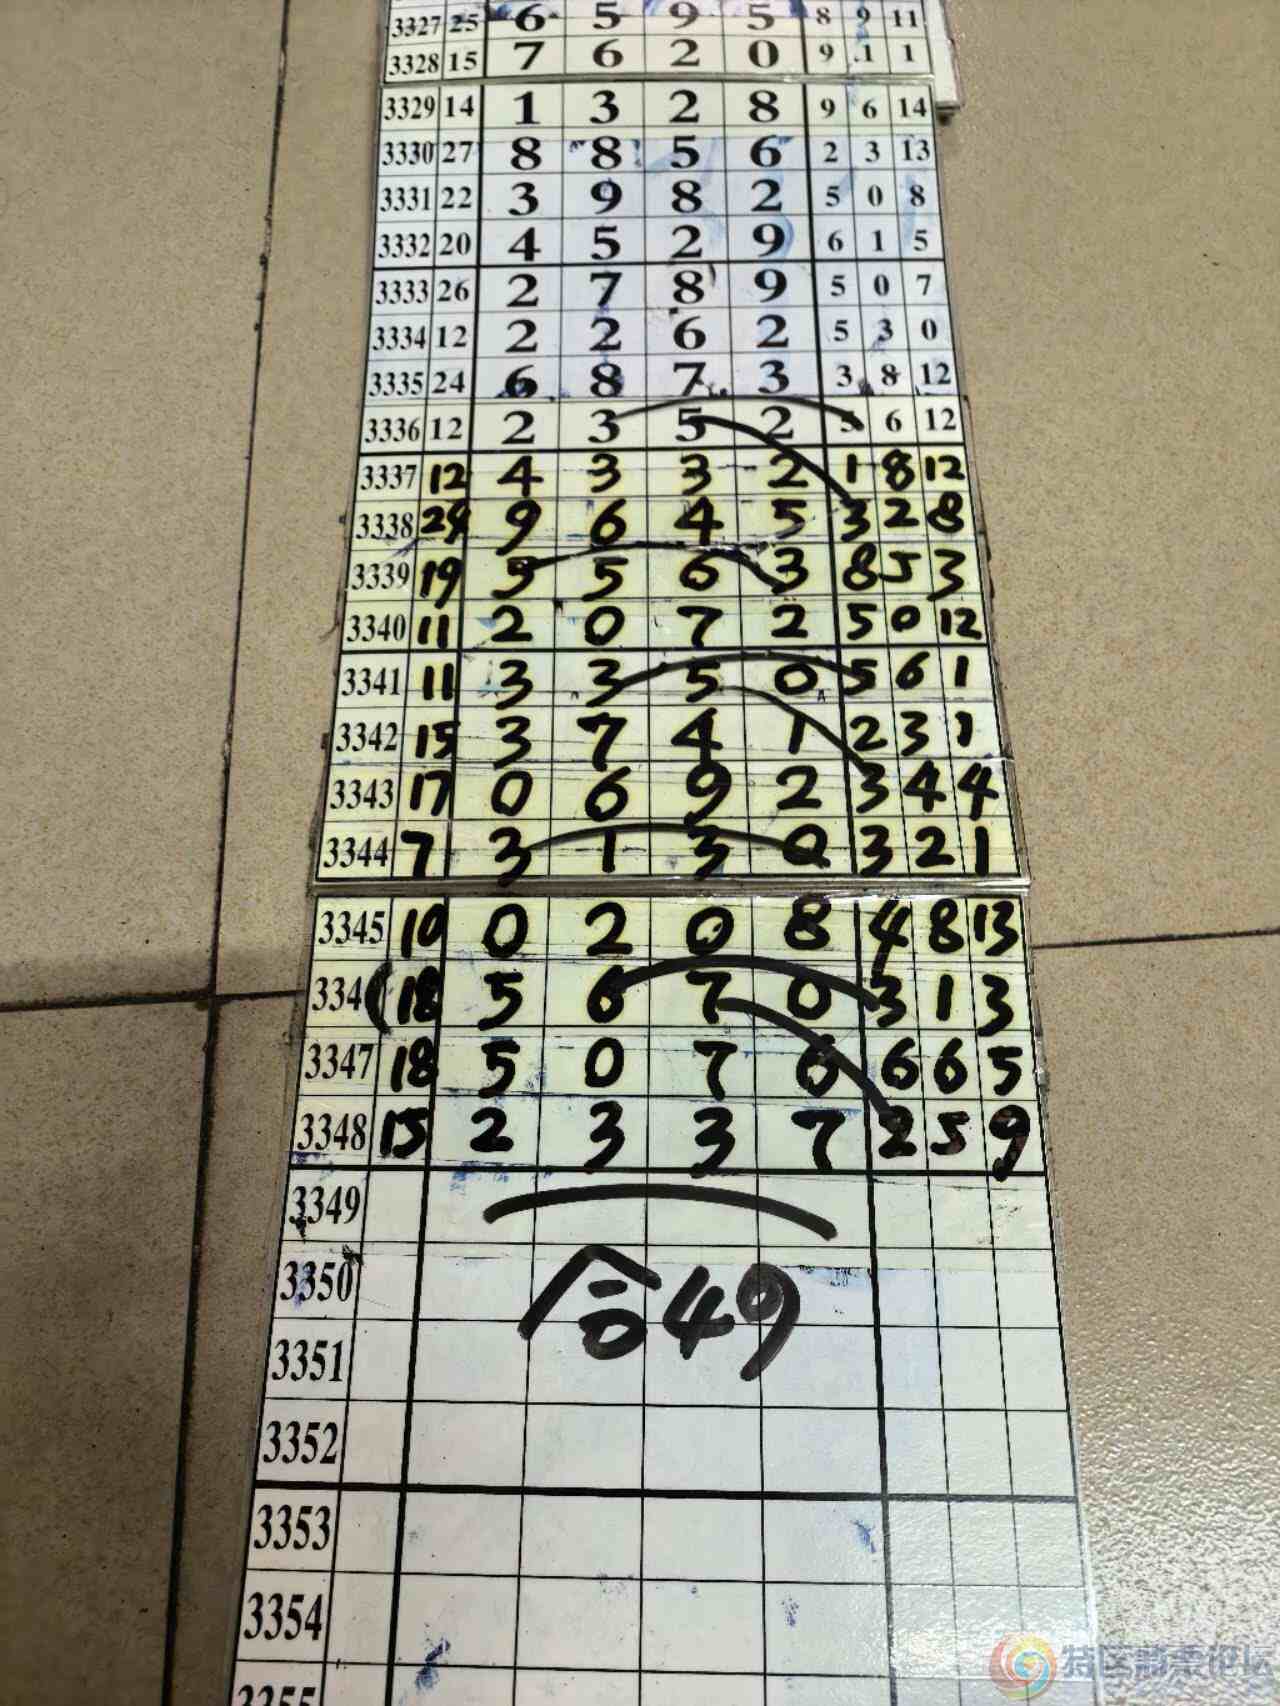 3327 25 6 5 9 5 8 9 11
3328 15 7 6 2 0 9 1 1
3329 14 1 3 2 8 9 6 14
3330 27 8 8 5 6 2 3 13
3331 22 3 9 8 2 5 0 8
3332 20 4 5 2 9 6 1 5
3333 26 2 7 8 9 5 0 7
3334 12 2 2 6 2 5 3 0
3335 24 6 8 7 3 3 8 12
3336 12 2 3 5 2 5 6 12
3337 12 4 3 3 2 1 8 12
3338 24 9 6 4 5 3 2 8
3339 19 5 5 6 3 8 5 3
3340 11 2 0 7 2 5 0 12
3341 11 3 3 5 0 5 6 1
3342 15 3 7 4 1 2 3 1
3343 17 0 6 9 2 3 4 4
3344 7 3 1 3 0 3 2 1
3345 10 0 2 0 8 4 8 13
334 18 5 6 7 0 3 1 3
3347 18 5 0 7 6 6 6 5
3348 15 2 3 3 7 2 5 9
3349
3350
合49
3351
3352
3353
3354
3355
特区彩票论坛